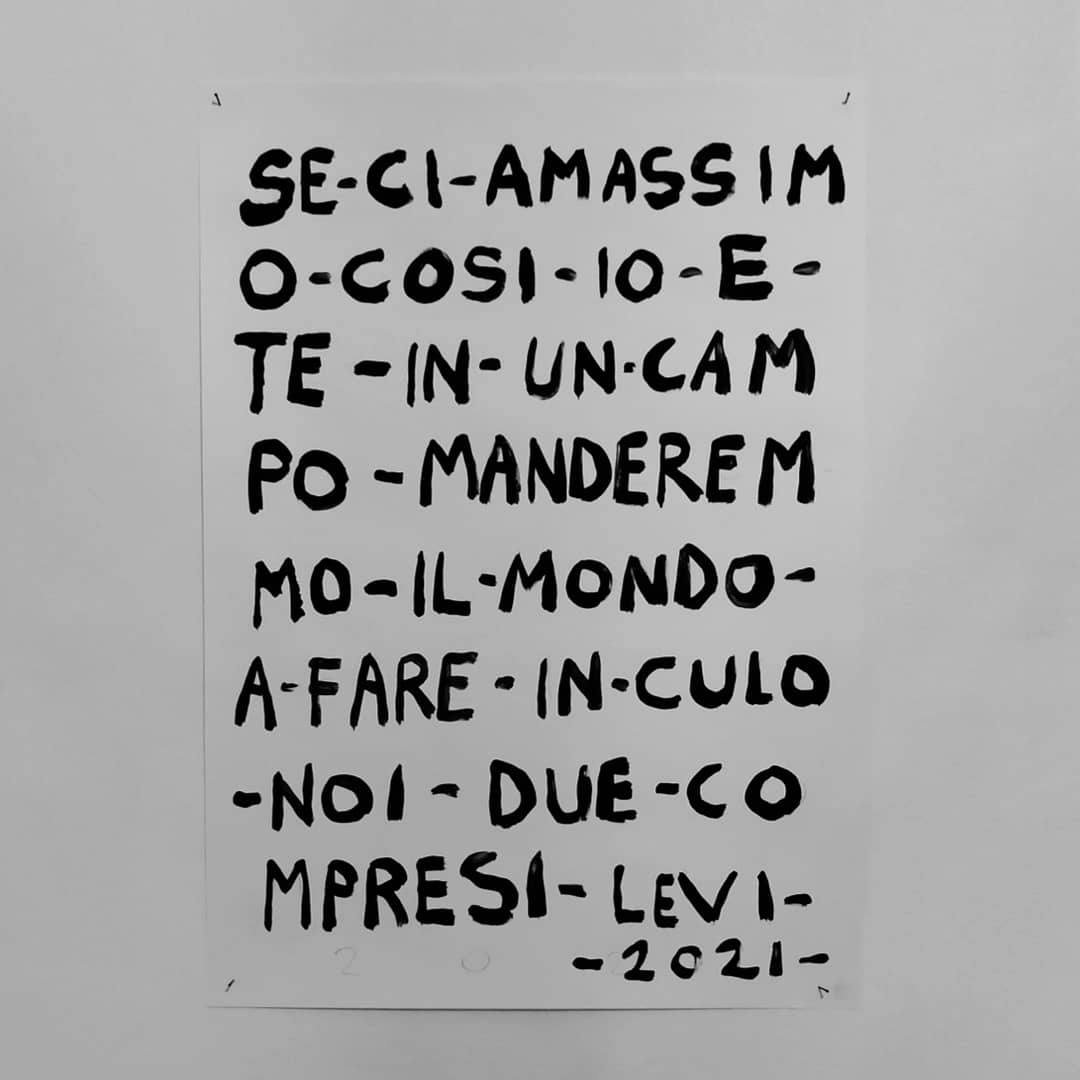 SE-CI-AMASSIM
O-COSI-IO-E-
TE-IN-UN-CAM
PO-MANDEREM
MO-IL-MONDO-
A-FARE-IN-CULO
-NOI-DUE-CO
MPRESI-LEVI-
2 0 -2021-